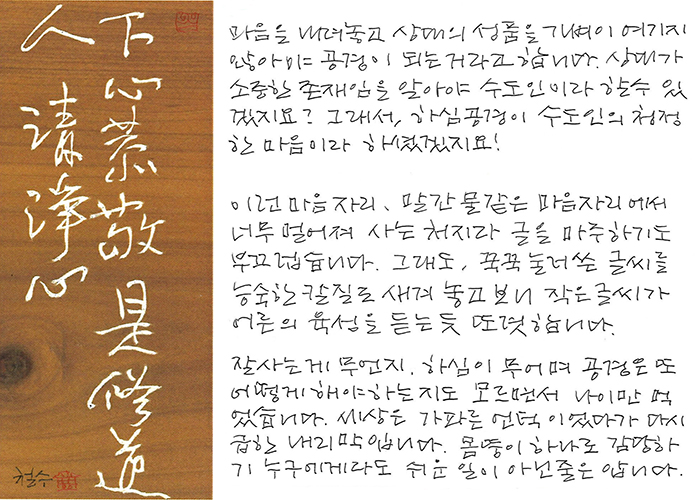 下心恭敬是修道
人清淨心
철수
마음을 내려놓고 상대의 성품을 가벼이 여기지
않아야 공경이 되는거라고 합니다. 상대가
소중한 존재임을 알아야 수도인이라 할수 있
겠지요? 그래서, 하심공경이 수도인의 청정
한 마음이라 하셨겠지요!
이런 마음자리, 말간 물같은 마음자리에서
너무 멀어져 사는 처지라 글을 마주하기도
부끄럽습니다. 그래도, 꾹꾹 눌러쓴 글씨를
능숙한 칼질로 새겨 놓고 보니 작은글씨가
어른의 육성을 듣는듯 또렷합니다.
잘사는게 무언지, 하심이 무어며 공경은 또
어떻게 해야하는지도 모르면서 나이만 먹
었습니다. 세상은 가파른 언덕이었다가 다시
급한 내리막입니다. 몸뚱이 하나로 감당하
기 누구에게라도 쉬운 일이 아닌줄은 압니다.